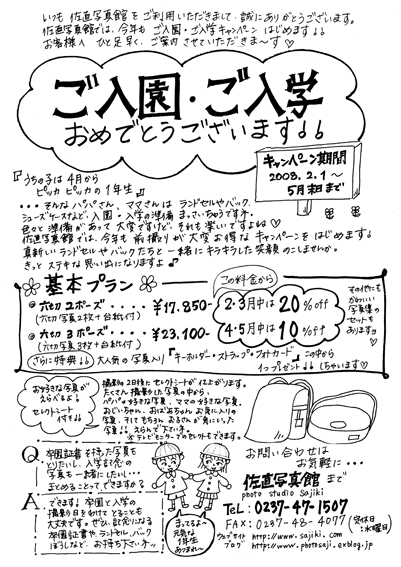 いつも 佐直写真館 を ご利用いただきまして・誠にありがとうございます。
佐直写真館では、今年も ご入園・ご入学キャンペーン はじめます♪♪
お客様へ ひと足早く、ご案内 させていただきま〜す♡
ご入園・ご入学
おめでとうございます♪♪
キャンペーン期間
2008.2.1〜
5月末日まで
『うちの子は 4月から
ピッカ ピッカの 1年生』
･･･そんな パパさん、ママさんは ランドセルやバック、
シューズケースなど、入園・入学の準備 まっているいちゅうです。
色々と 準備があって 大変ですけど、それも 楽しいですよね♡
佐直写真館では、今年も 前撮りが 大変 お得な キャンペーンを はじめます♪
真新しいランドセルやバックたちと 一緒に キラキラした 笑顔 のこしませんか。
きっと ステキな 思い出になりますよ♪
基本プラン
◎ 六切 2ポーズ・・・・ ¥17,850-
(六切写真2枚+台紙付)
◎ 六切 3ポーズ・・・・ ¥23,100-
(六切写真3枚+台紙付)
この料金から
2・3月中は 20% off
4・5月中は 10% off
その他にも
かわいい
写真集の
セットも
あります♡
さらに特典♪♪
大人気の 写真入り『キーホルダー・ストラップ・フォトカード』この中から
1つプレゼント♪♪(しちゃいます♡)
お好きな写真が
えらべるよ♪
セレクトシート
付♪♪
撮影の 2日後に セレクトシートが仕上がります。
たくさん 撮影した 写真の中から、
パパの好きな写真、ママの好きな写真、
おじいちゃん、おばあちゃん お気に入りの
写真、そして もちろん お子さんが 気に入した
写真♪♪ えらんで下さいネ。
※テレビモニターでのセレクトもできます。
Q 卒園証書を持った写真も
とりたいし、入学記念の
写真も 一緒にしたい・・・
まとめることって、できますか?
A できます! 卒園と入学の
撮影が1日をわけて とることも
大丈夫です。ぜひ、記念になる
卒園証書や、ランドセル、バック、
ぼうしなど、お持ち下さいネッ
まってるよ〜
元気な
1年生
あつまれ〜
お問い合わせは
お気軽に・・・
佐直写真館 まで
photo studio Sajiki
TEL: 0237-47-1507
FAX: 0237-48-4077 (定休日:水曜日)
ウェブサイト http://www.sajiki.com
ブログ http://www.photosaji.exblog.jp